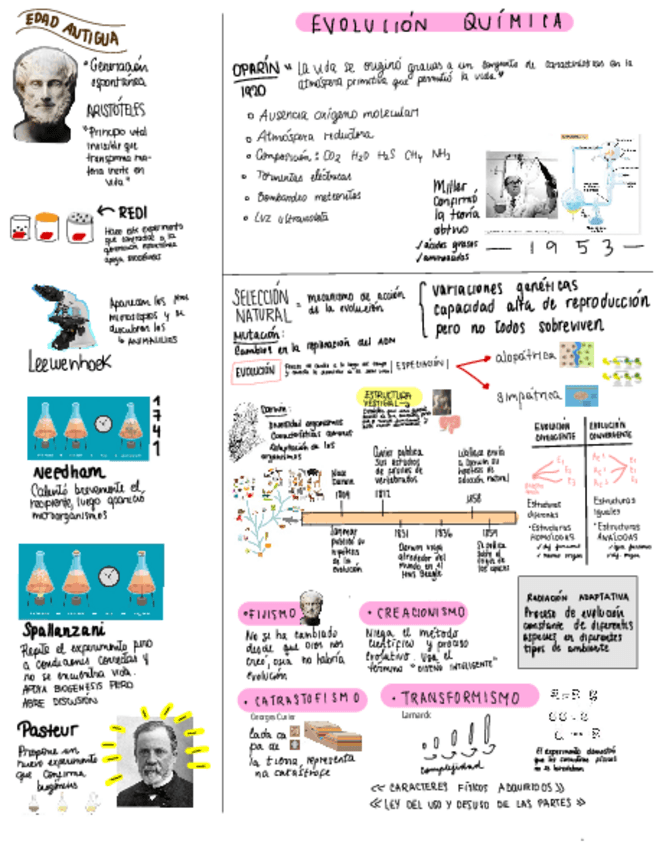 EDAD ANTIGUA
"Generación
espontánea
ARISTÓTELES
"Principio vital
invisible que
transforma ma-
teria inerte en
vida"
REDI
Hace este experimento
que contradice a la
generación espontánea
Aparecen los
microscopios y se
descubren los
ANIMALILLOS
Leewenhoek
1741
Needham
Calentó brevemente el
recipiente, luego apareció
microorganismos
Spallanzani
Repite el experimento pero
a condiciones correctas y
no se encuentra vida.
APOYA BIOGENESIS PERO
ABRE DISCUSIÓN
Pasteur
Propone un
nuevo experimento
que confirma
biogénesis
EVOLUCIÓN QUÍMICA
OPARÍN "La vida se originó gracias a un conjunto de características en la
1920 atmósfera primitiva que permitió la vida"
Ausencia oxígeno molecular
Atmósfera reductora
Composición: CO2 H2O H2S CH4 NH3
Tormentas eléctricas
Bombardeo meteoritos
Luz ultravioleta
Miller
Confirmó
la teoría
obtuvo
✓ácidos grasos
✓aminoácidos
— 1953 —
SELECCIÓN NATURAL = mecanismo de acción
de la evolución
variaciones genéticas
capacidad alta de reproducción
pero no todos sobreviven
MUTACIÓN:
Cambios en la replicación del ADN
EVOLUCIÓN
ESPECIACIÓN
alopátrica
simpátrica
Darwin:
Diversidad organismos
Características comunes
Adaptación de los
organismos
ESTRUCTURA
VESTIGIAL
Nace
Darwin
1809
Cuvier publica
sus estudios
de fósiles de
vertebrados
1812
Wallace envía
a Darwin su
hipótesis de
selección natural
1858
Lamarck
publicó su
hipótesis
de la
evolución
1831
1836
Darwin viaja
alrededor del
mundo en el
HMS Beagle
1859
Se publica
sobre el
origen de
las especies
EVOLUCIÓN
DIVERGENTE
EVOLUCIÓN
CONVERGENTE
Estructuras
diferentes
*Estructuras
HOMÓLOGAS
✓dif. funcional
✓mismo origen
Estructuras
iguales
*Estructuras
ANÁLOGAS
✓dif. origen
RADIACIÓN ADAPTATIVA
Proceso de evolución
constante de diferentes
especies en diferentes
tipos de ambiente
•FIJISMO
No se ha cambiado
desde que Dios nos
creó, osea no habría
evolución
• CREACIONISMO
Niega el método
científico y proceso
evolutivo. Usa el
término "DISEÑO INTELIGENTE"
• CATRASTOFISMO
Georges Cuvier
Cada ca
pa de
la tierra, representa
na catástrofe
• TRANSFORMISMO
Lamarck
complejidad
<< CARACTERES FÍSICOS ADQUIRIDOS >>
<< LEY DEL USO Y DESUSO DE LAS PARTES >>
El experimento demostró
que los caracteres físicos
no se heredaban